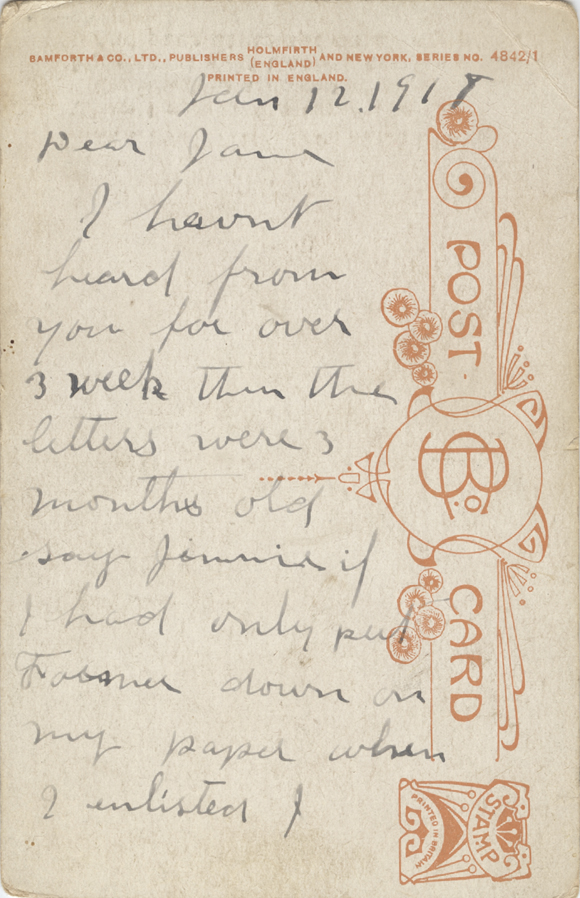 BAMFORTH & CO., LTD., PUBLISHERS HOLMFIRTH (ENGLAND) AND NEW YORK, SERIES NO. 4842/1
PRINTED IN ENGLAND.
Jan 12. 1918
Dear Jane
I havnt
heard from
you for over
3 week then the
letters were 3
months old
say Jennie if
I had only put
Farmer down on
my paper when
I enlisted I
POST CARD
B Co
STAMP
PRINTED IN BRITAIN